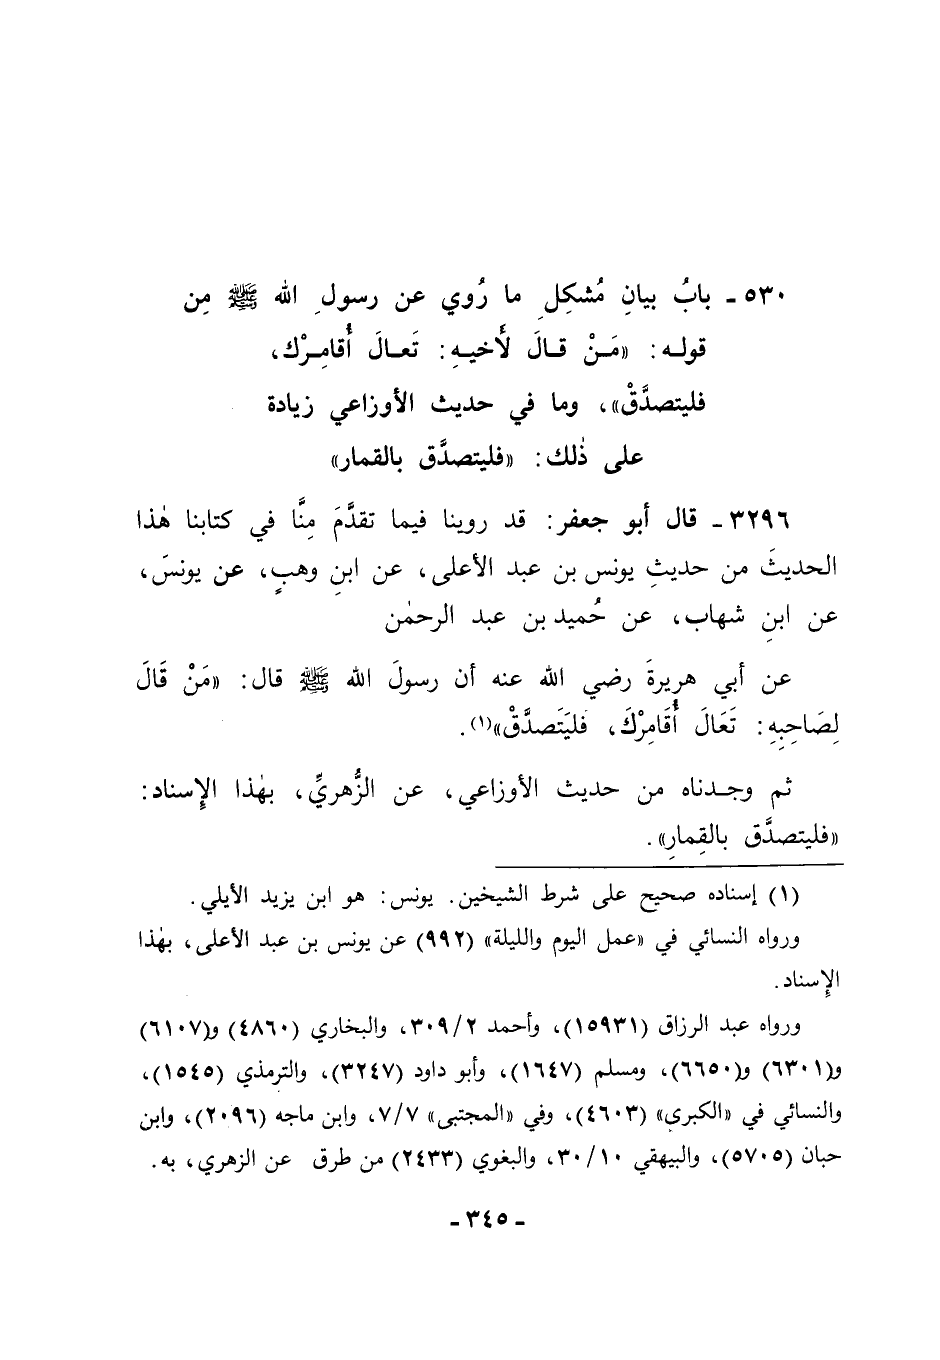 ٥٣٠ ـ بابُ بيانِ مُشكِلِ ما رُوي عن رسولِ الله ﷺ مِن
قولـه: «مَـنْ قـالَ لأَخيـهِ: تَعـالَ أُقامِـرْك،
فليتصدَّقْ»، وما في حديث الأوزاعي زيادة
على ذٰلك: «فليتصدَّق بالقمار»
٣٢٩٦ ـ قال أبو جعفر: قد روينا فيما تقدَّمَ مِنَّا في كتابنا هٰذا
الحديثَ من حديثِ يونس بن عبد الأعلى، عن ابنِ وهبٍ، عن يونسَ،
عن ابنِ شهاب، عن حُميد بن عبد الرحمٰن
عن أبي هريرةَ رضي الله عنه أن رسولَ الله ﷺ قال: «مَنْ قَالَ
لِصَاحِبِهِ: تَعَالَ أُقَامِرْكَ، فليَتَصدَّقْ»(١).
ثم وجـدناه من حديث الأوزاعي، عن الزُّهريِّ، بهٰذا الإِسناد:
«فليتصدَّق بالقِمارِ».
(١) إسناده صحيح على شرط الشيخين. يونس: هو ابن يزيد الأيلي.
ورواه النسائي في «عمل اليوم والليلة» (٩٩٢) عن يونس بن عبد الأعلى، بهٰذا
الإِسناد.
ورواه عبد الرزاق (١٥٩٣١)، وأحمد ٣٠٩/٢، والبخاري (٤٨٦٠) و(٦١٠٧)
و(٦٣٠١) و(٦٦٥٠)، ومسلم (١٦٤٧)، وأبو داود (٣٢٤٧)، والترمذي (١٥٤٥)،
والنسائي في «الكبرى» (٤٦٠٣)، وفي «المجتبى» ٧/٧، وابن ماجه (٢٠٩٦)، وابن
حبان (٥٧٠٥)، والبيهقي ٣٠/١٠، والبغوي (٢٤٣٣) من طرق عن الزهري، به.
ـ ٣٤٥ ـ